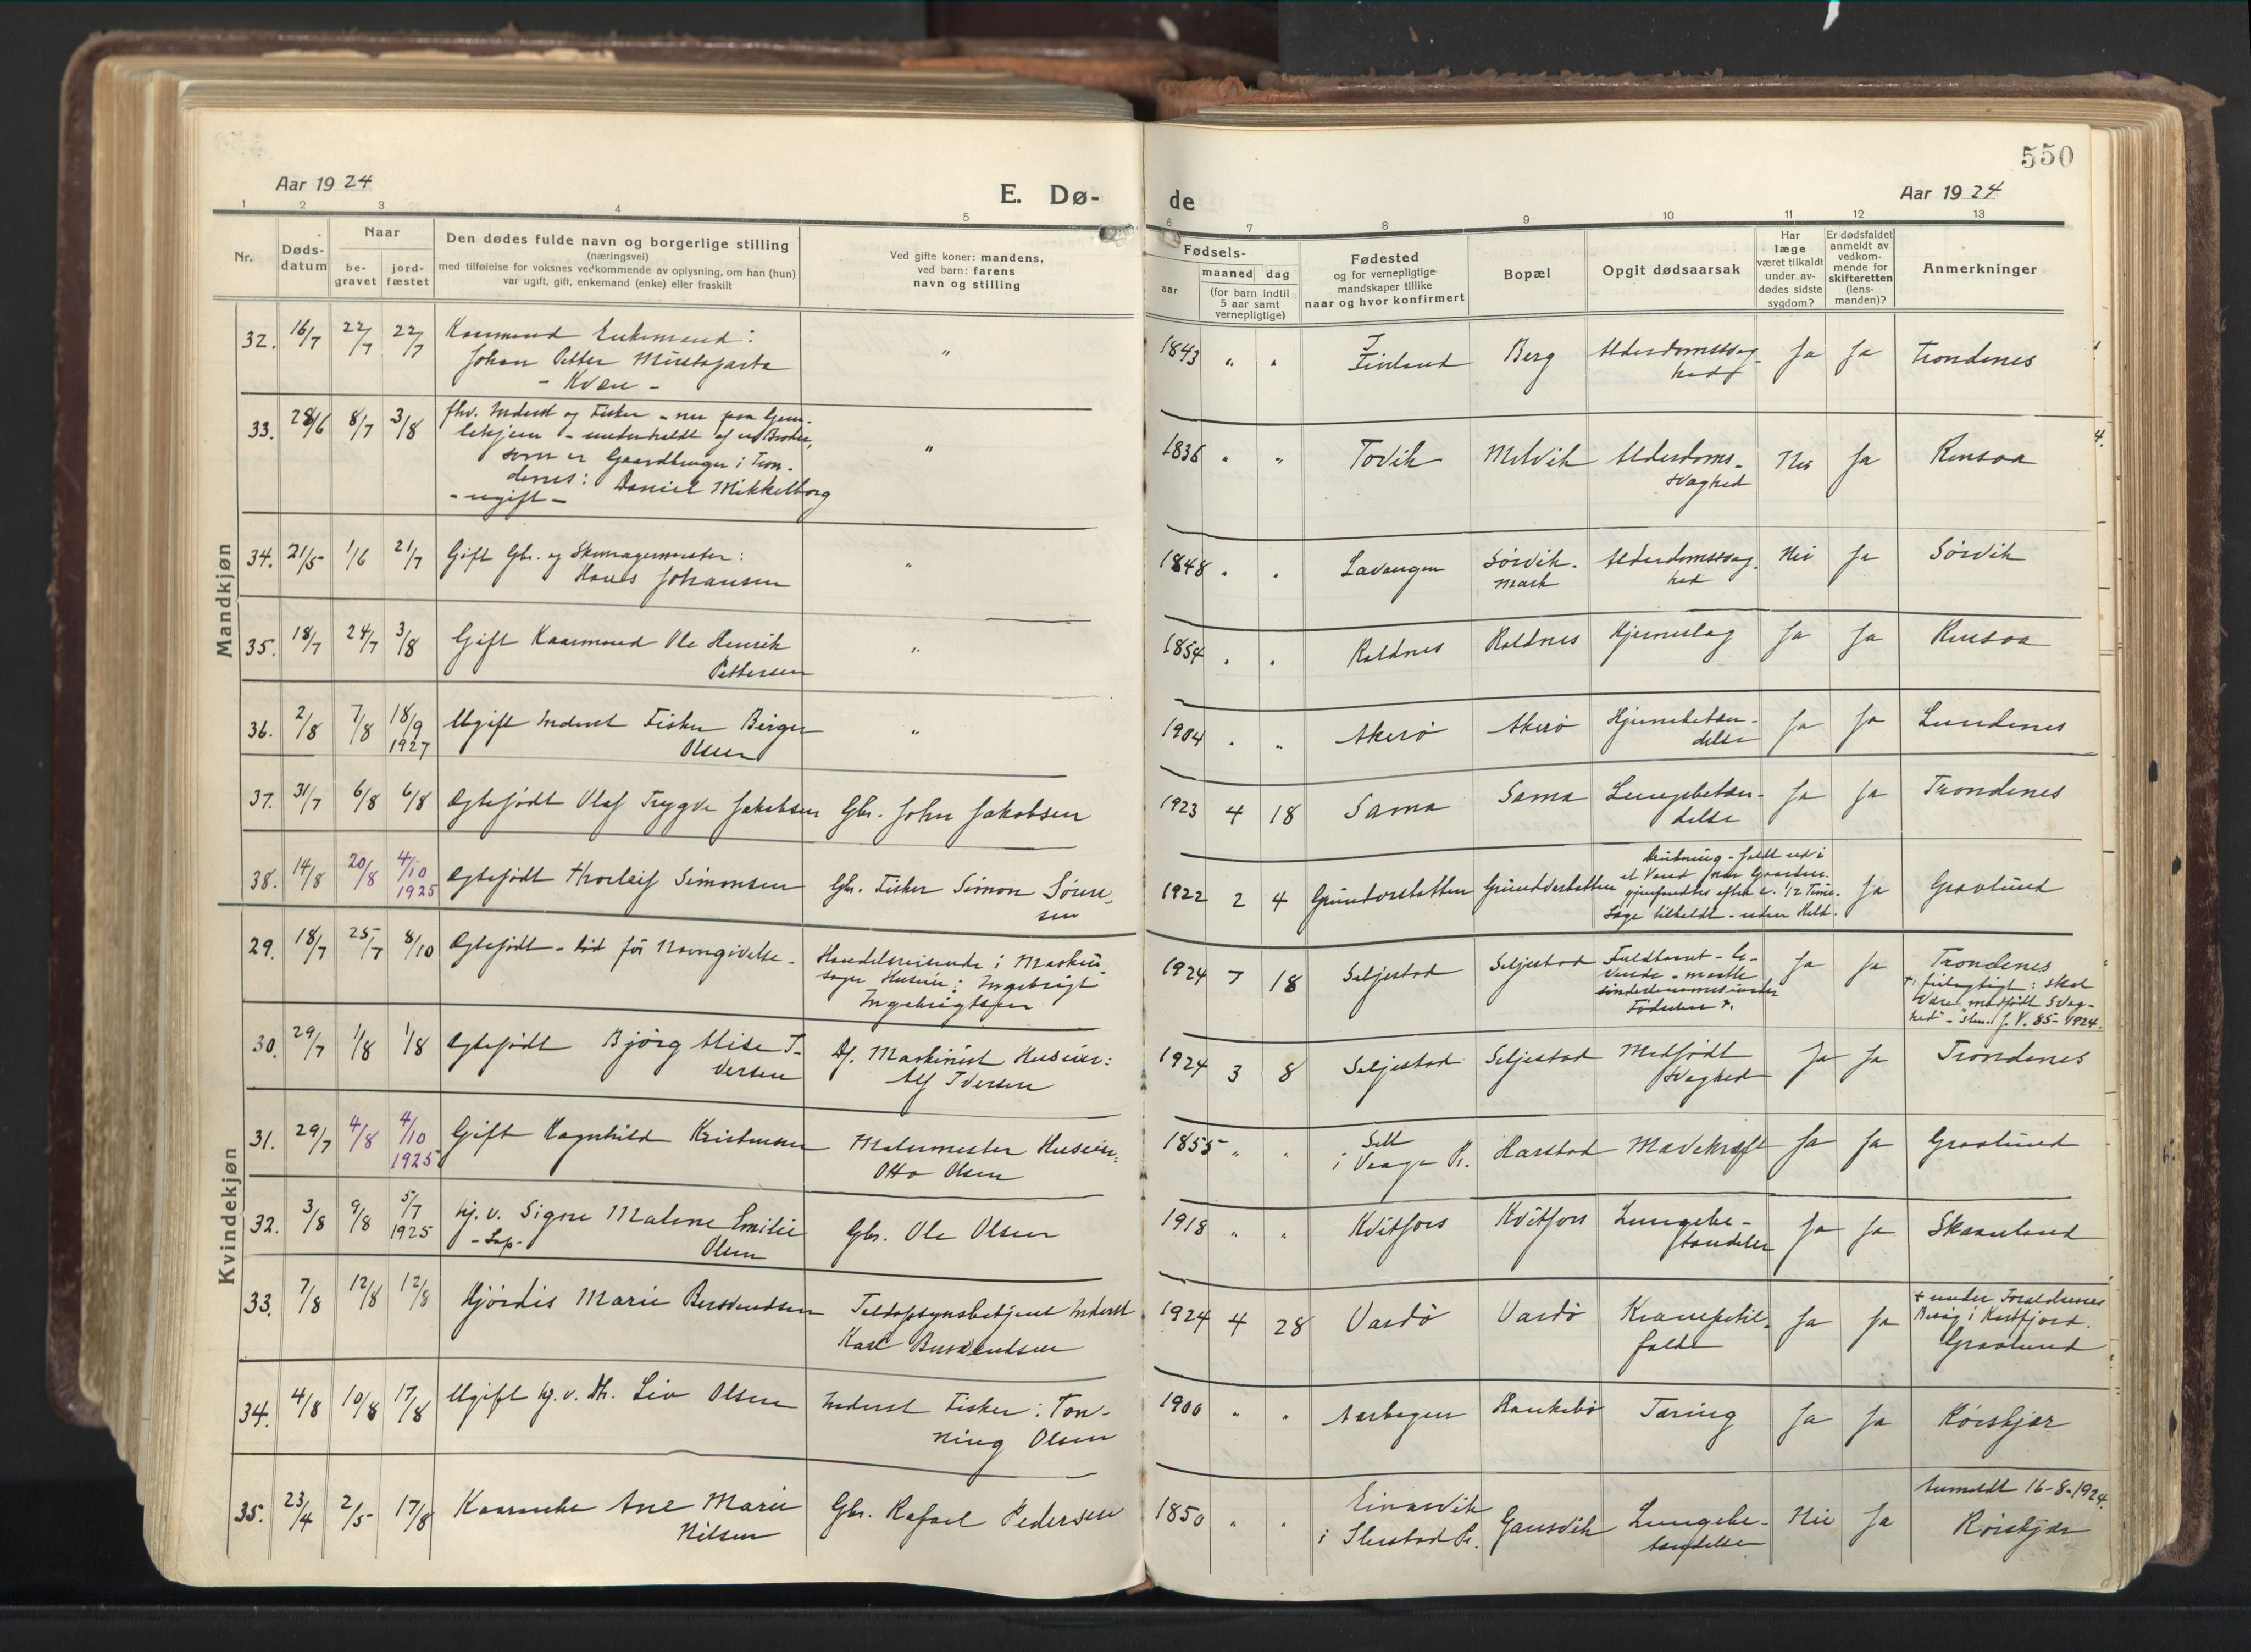 550
Aar 1924
E. Dø-
de
Aar 1924
1 2 3 4 5 6 7 8 9 10 11 12 13
Nr.
Døds-
datum
Naar
be-
gravet
jord-
fæstet
Den dødes fulde navn og borgerlige stilling
(næringsvei)
med tilføielse for voksnes vedkommende av oplysning, om han (hun)
var ugift, gift, enkemand (enke) eller fraskilt
Ved gifte koner: mandens,
ved barn: farens
navn og stilling
Fødsels-
aar
maaned dag
(for barn indtil
5 aar samt
vernepligtige)
Fødested
og for vernepligtige
mandskaper tillike
naar og hvor konfirmert
Bopæl
Opgit dødsaarsak
Har
læge
været tilkaldt
under av-
dødes sidste
sygdom?
Er dødsfaldet
anmeldt av
vedkom-
mende for
skifteretten
(lens-
manden)?
Anmerkninger
Mandkjøn
32. 16/7 22/7 22/7 Kaarmand Enkemand:
Johan Petter
- Kvæn -
" 1843 " " Finland Berg Alderdomssvag-
hed Ja Ja Trondenes
33. 28/6 8/7 3/8 fhv. Inderst og Fisker - nu paa Gam-
lehjem - underholdt af en Broder,
som er Gaardbruger i Tron-
denes: Daniel Mikkelborg
- ugift -
" 1836 " " Tovik Melvik Alderdoms-
svaghed Nei Ja Rensaa
34. 21/5 1/6 21/7 Gift Gbr. og Skomagermester:
Hans Johansen
" 1848 " " Lavangen Sørvik-
mark Alderdomssvag-
hed Nei Ja Sørvik
35. 18/7 24/7 3/8 Gift Kaarmand Ole Henrik
Pettersen
" 1854 " " Roldnes Roldnes Hjerneslag Ja Ja Rensaa
36. 2/8 7/8 18/9
1927 Ugift Inderst Fisker Birger
Olsen
" 1904 " " Akerø Akerø Hjernebetæn-
delse Ja Ja Lundenes
37. 31/7 6/8 6/8 Ægtefødt Olaf Trygve Jakobsen Gbr. John Jakobsen
1923 4 18 Sama Sama Lungebetæn-
delse Ja Ja Trondenes
38. 14/8 20/8 4/10
1925 Ægtefødt Thorleif Simonsen Gbr. Fisker Simon Søren-
sen
1922 2 4 Grundvorstatten Grundvorstatten Drukning - faldt ud i
et Vand nær Gaarden.
gjenfandtes efter c. 1/2 Time.
Læge tilkaldt - uden Held. Ja Gravlund
Kvindekjøn
29. 18/7 25/7 8/10 Ægtefødt - død før Navngivelse - Handelsreisende i Maskin-
sager Huseier: Ingebrigt
Ingebrigtsen
1924 7 18 Seljestad Seljestad Fuldbaaret - le-
vende - maatte
sønderlemmes under
Fødselen +. Ja Ja Trondenes
+ feilagtigt: skal
være "medfødt Svag-
hed" - 85-1924.
30. 29/7 1/8 1/8 Ægtefødt Bjørg Alise I-
versen Af. Maskinist Huseier:
Alf Iversen
1924 3 8 Seljestad Seljestad Medfødt
Svaghed Ja Ja Trondenes
31. 29/7 4/8 4/10
1925 Gift Ragnhild Kristensen Malermester Huseier:
Otto Olsen
1855 " " Sell
i Vaage Pr. Harstad Mavekræft Ja Ja Gravlund
32. 3/8 9/8 5/7
1925 hj. v. Signe Malene Emilie
- Lap - Olsen Gbr. Ole Olsen
1918 " " Kvitfors Kvitfors Lungebe-
tændelse Ja Ja Skaanland
33. 7/8 12/8 12/8 Hjørdis Marie Bersvendsen Toldopsynsbetjent Inderst
Karl Bersvendsen
1924 4 28 Vardø Vardø Krampetil-
fælde Ja Ja + under Forældrenes
Besøg i Kastfjord.
Gravlund
34. 4/8 10/8 17/8 Ugift hj. v. Dtr. Liv Olsen Inderst Fisker: Ton-
ning Olsen
1900 " " Aarbogen Rankebø Tæring Ja Ja Røiskjær
35. 23/4 2/5 17/8 Kaarenke Ane Marie
Nilsen Gbr. Rafael Pedersen
1850 " " Einarvik
i Pr. Gausvik Lungebe-
tændelse Nei Ja Anmeldt 16-8-1924.
Røiskjær